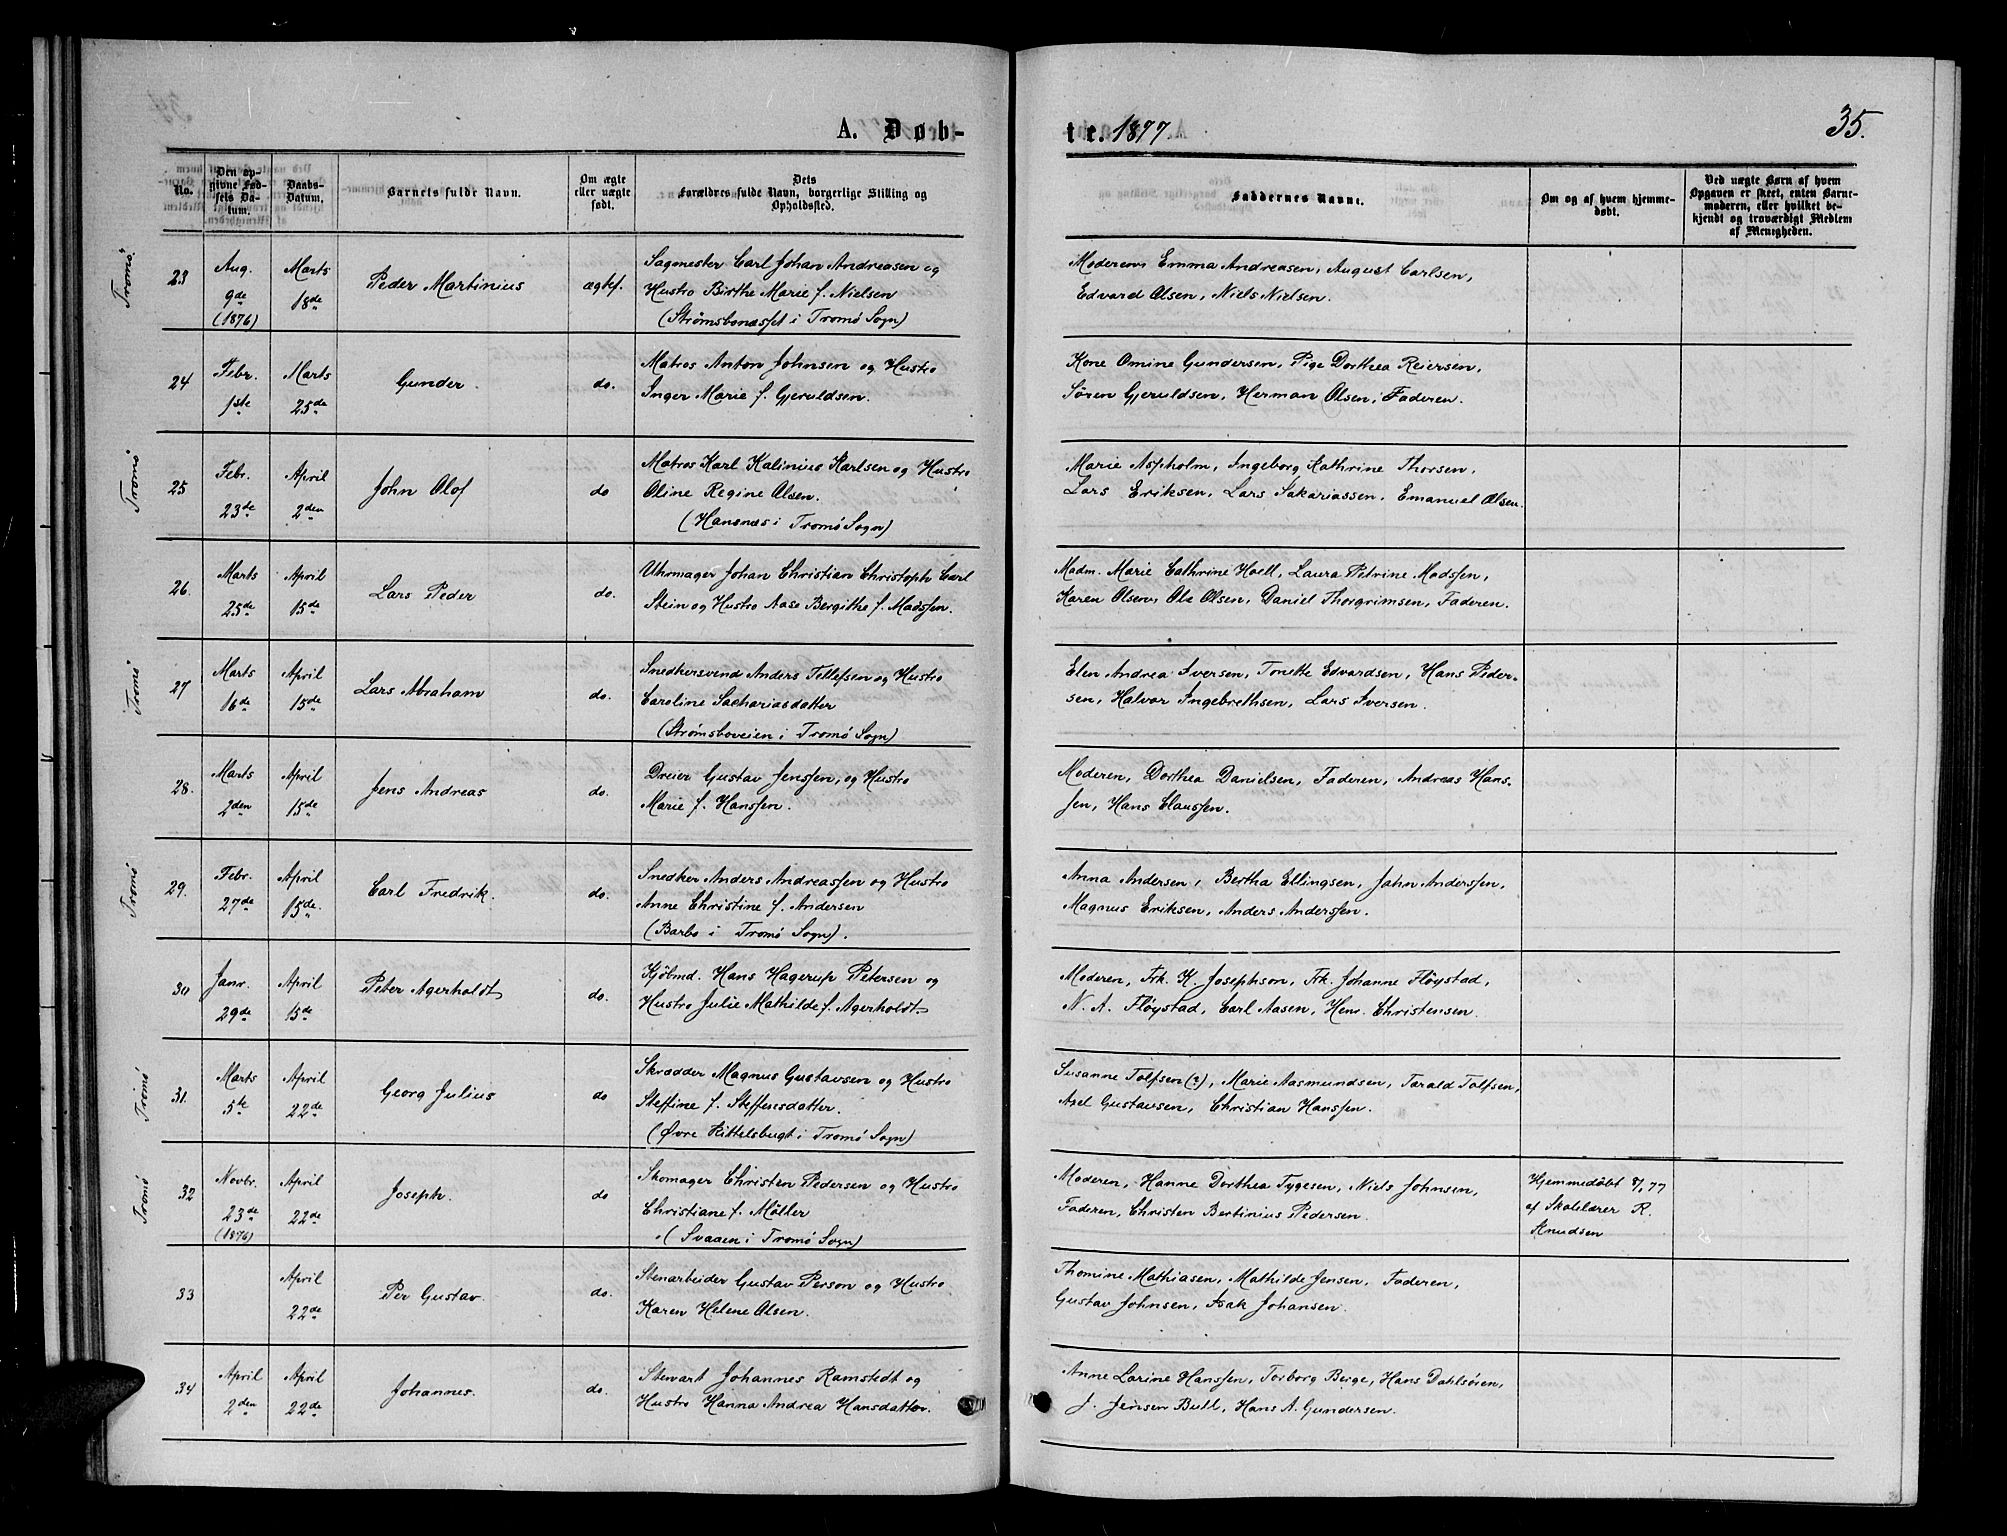 A. Døb-
te. 1877
35.
No.
Den opgivne Fødsels Datum.
Daabs-Datum.
Barnets fulde Navn.
Om ægte eller uægte født.
Dets Forældres fulde Navn, borgerlige Stilling og Opholdssted.
Faddernes Navne.
Om og af hvem hjemmedøbt.
Ved uægte Børn af hvem Opgaven er skeet, enten Barnemoderen, eller hvilket bekjendt og troværdigt Medlem af Menigheden.
Tromø
23 Aug. 9de (1876) Marts 18de Peder Martinius ægtef.
Sagmester Carl Johan Andreasen og
Hustro Birthe Marie f. Nielsen
(Strømsbonæsset i Tromø Sogn)
Moderen, Emma Andreasen, August Carlsen,
Edvard Olsen, Niels Nielsen.
24 Febr. 1ste Marts 25de Gunder. do.
Matros Anton Johnsen og Hustro
Inger Marie f. Gjeruldsen.
Kone Omine Gundersen, Pige Dorthea Reiersen,
Søren Gjeruldsen, Herman Olsen, Faderen.
Tromø
25 Febr. 23de April 2den John Olof do
Matros Karl Kalinius Karlsen og Hustro
Oline Regine Olsen.
(Hansnæs i Tromø Sogn)
Marie Aspholm, Ingeborg Kathrine Thorsen,
Lars Eriksen, Lars Sakariassen, Emanuel Olsen.
26. Marts 25de April 15de Lars Peder do.
Uhrmager Johan Christian Christoph Carl
Stein og Hustro Aase Bergithe f. Madssen.
Madm. Marie Cathrine Hoell, Laura Petrine Madssen,
Karen Olsen, Ole Olsen, Daniel Thorgrimsen, Faderen.
Tromø
27 Marts 16de April 15de Lars Abraham do.
Snedkersvend Anders Tellefsen og Hustro
Caroline Sachariasdatter
(Strømsboveien i Tromø Sogn)
Elen Andrea Iversen, Tonette Edvardsen, Hans Peder-
sen, Halvor Ingebrethsen, Lars Iversen.
28. Marts 2den April 15de Jens Andreas do.
Dreier Gustav Jenssen, og Hustro
Marie f. Hanssen.
Moderen, Dorthea Danielsen, Faderen, Andreas Hans-
sen, Hans Claussen.
Tromø
29. Febr. 27de April 15de. Carl Fredrik. do.
Snedker Anders Andreassen og Hustro
Anne Christine f. Andersen
(Barbo i Tromø Sogn).
Anna Andersen, Bertha Ellingsen, John Anderssen,
Magnus Eriksen, Anders Anderssen.
30 Janr. 29de April 15de Peter Agerholdt do.
Kjøbmd. Hans Hagerup Petersen og
Hustro Julie Mathilde f. Agerholdt
Moderen, Frk. K. Josephson, Frk. Johanne Fløystad,
N. A. Fløystad, Carl Aasen, Henr. Christensen.
Tromø
31. Marts 5te April 22de Georg Julius do
Skrædder Magnus Gustavsen og Hustro
Steffine f. Steffensdatter.
(Øvre Kittelsbugt i Tromø Sogn)
Susanne Tolfsen (?), Marie Aasmundsen, Tarald Tolfsen,
Axel Gustavsen, Christian Hanssen.
Tromø
32 Novbr. 23de (1876) April 22de Joseph. do
Skomager Christen Pedersen og Hustro
Christiane f. Møller
(Svaaen i Tromø Sogn)
Moderen, Hanne Dorthea Tygesen, Niels Johnsen,
Faderen, Christen Bertinius Pedersen.
Hjemmedøbt 8/1 77
af Skolelærer R.
Knudsen
33 April 22de Per Gustav. do.
Stenarbeider Gustav Person og Hustro
Karen Helene Olsen.
Thomine Mathiasen, Mathilde Jensen, Faderen,
Gustav Johnsen, Isak Johansen.
34 April 2den April 22de Johannes. do.
Stewart Johannes Ramstedt og
Hustro Hanna Andrea Hansdatter.
Anne Larine Hanssen, Torborg Berge, Hans Dahlsøren,
J. Jensen Bull, Hans A. Gundersen.